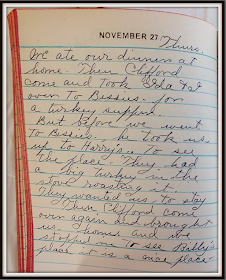 NOVEMBER 27 Thurs.
We ate our dinner at
home. Then Clifford
come and took Ida & I
over to Bessies. for
a turkey supper.
But before we went
to Bessies. he took us
up to Harry's. to see
the place. They had
a big turkey in the
stove roasting it.
They wanted us to stay
Then Clifford come
over again and brought
us. home and we
stopped in to see Billy's
place it is a nice place